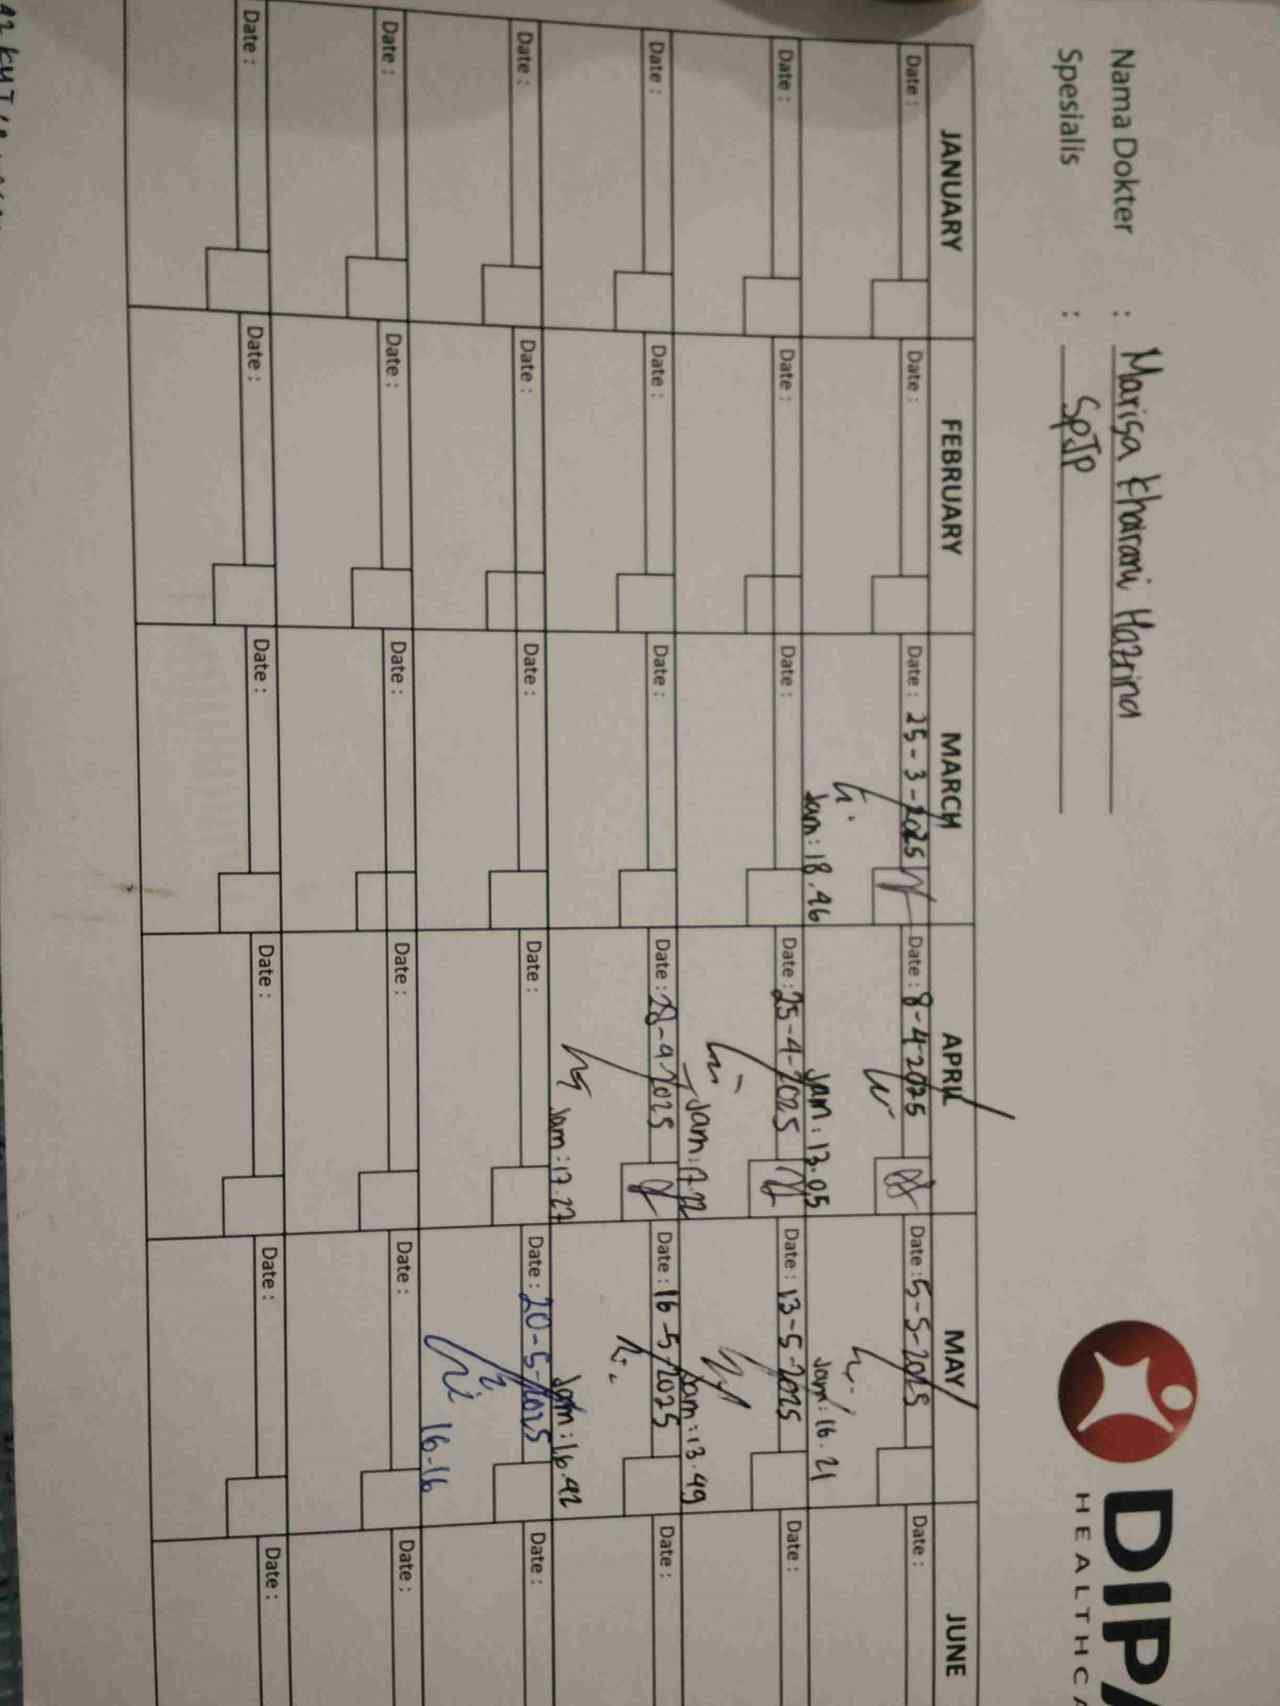 DIPA
HEALTHCA
Nama Dokter : Marisa Khairani Hazrina
Spesialis : SpJP
JANUARY FEBRUARY MARCH APRIL MAY JUNE
Date : Date : Date : 25-3-2025 Date : 8-4-2025 Date : 5-5-2025 Date :
Jam : 18.46 Jam : 13.05 Jam : 16.21
Date : Date : Date : Date : 25-4-2025 Date : 13-5-2025 Date :
Jam : 17.22 Jam : 13.49
Date : Date : Date : Date : 28-4-2025 Date : 16-5-2025 Date :
Jam : 17.27 Jam : 16.42
Date : Date : Date : Date : Date : 20-5-2025 Date :
16-16
Date : Date : Date : Date : Date : Date :
Date : Date : Date : Date : Date : Date :